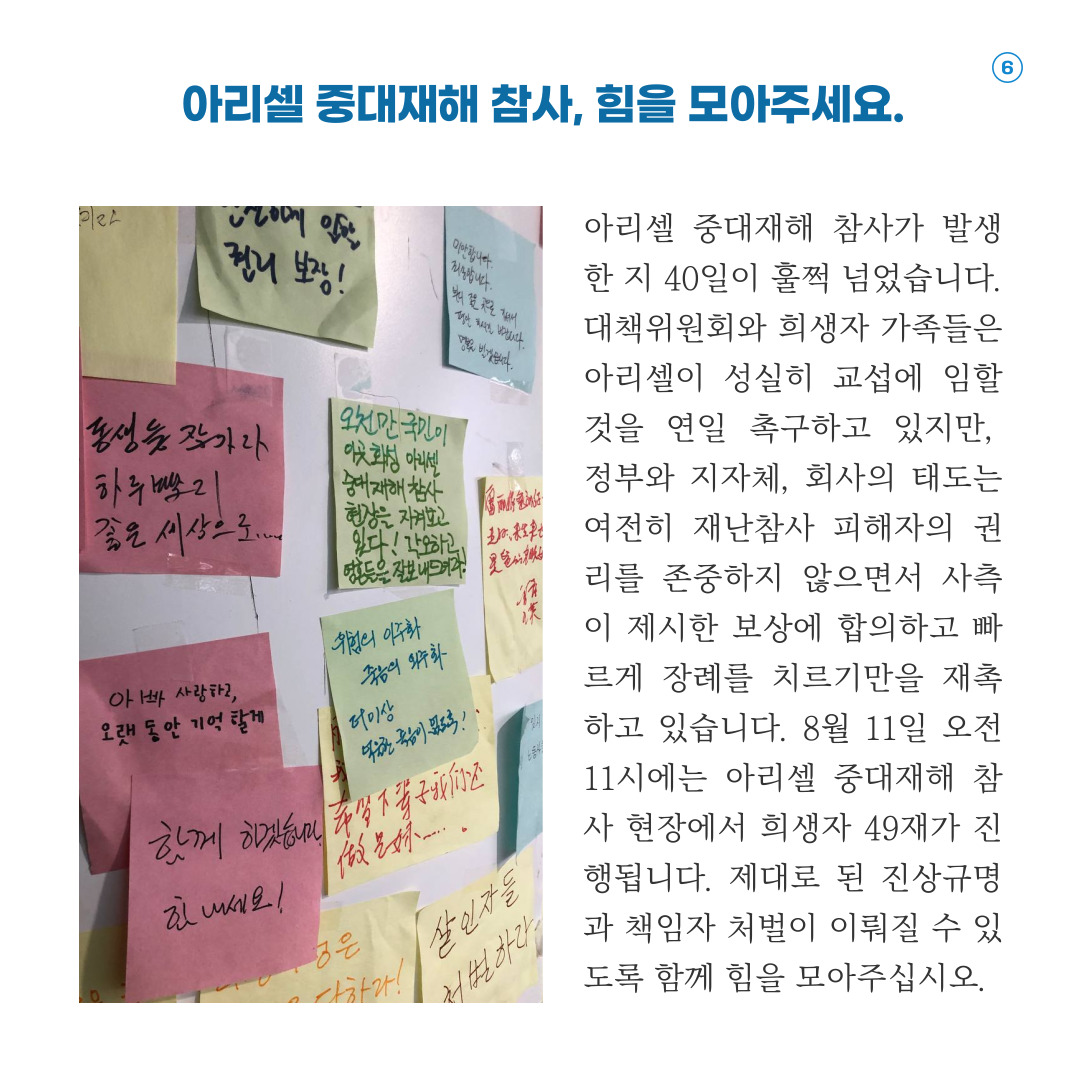 6
아리셀 중대재해 참사, 힘을 모아주세요.
권리 보장!
미안합니다.
죄송합니다.
동생 듯 잘가라
하루빨리
좋은 세상으로....
오천만 국민이
이곳 화성 아리셀
중대재해 참사
현장을 지켜보고
있다! 각오하고
영혼들을 잘보내드려라!
위험의 이주화
죽음의 외주화
더이상
억울한 죽음이 없도록!
아빠 사랑하고,
오랫동안 기억할게
希望下辈子我们还
做兄妹......
함께 하겠습니다.
힘내세요!
살인자들
처벌하라
아리셀 중대재해 참사가 발생
한 지 40일이 훌쩍 넘었습니다.
대책위원회와 희생자 가족들은
아리셀이 성실히 교섭에 임할
것을 연일 촉구하고 있지만,
정부와 지자체, 회사의 태도는
여전히 재난참사 피해자의 권
리를 존중하지 않으면서 사측
이 제시한 보상에 합의하고 빠
르게 장례를 치르기만을 재촉
하고 있습니다. 8월 11일 오전
11시에는 아리셀 중대재해 참
사 현장에서 희생자 49재가 진
행됩니다. 제대로 된 진상규명
과 책임자 처벌이 이뤄질 수 있
도록 함께 힘을 모아주십시오.